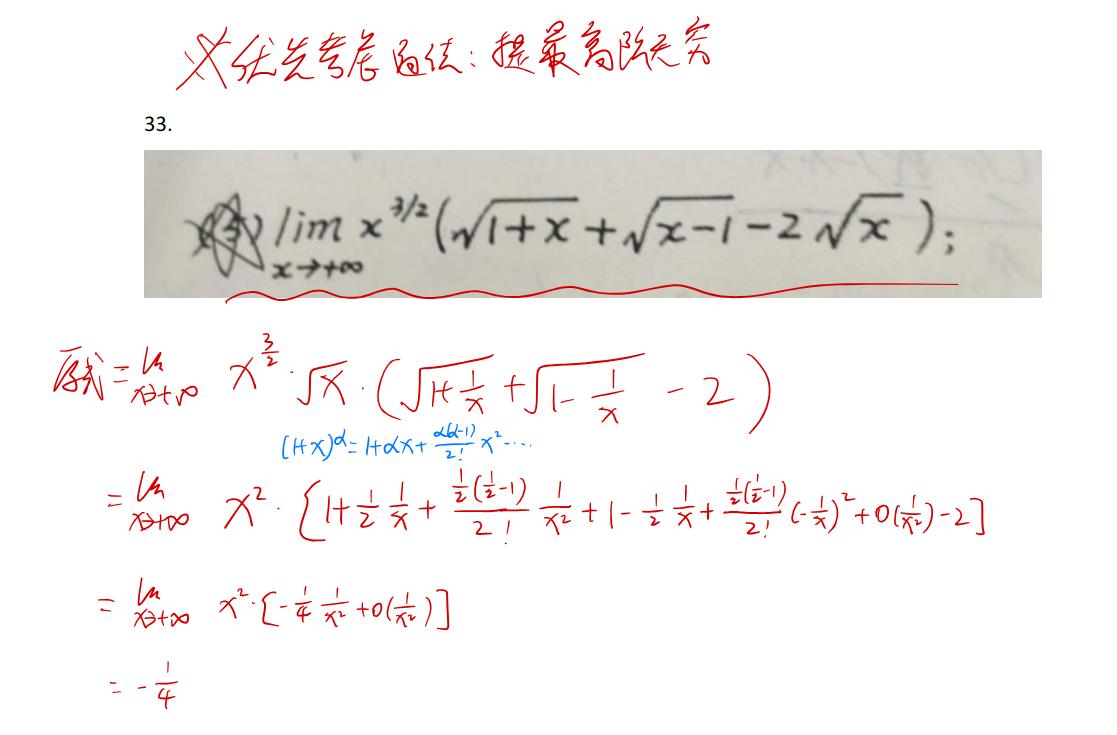 ※优先考虑通法：提最高阶无穷
33.
(3) lim x→+∞ x^{3/2}(√(1+x) + √(x-1) - 2√x);
原式 = lim x→+∞ x^{3/2}·√x·(√(1+1/x) + √(1-1/x) - 2)
(1+x)^α = 1+αx+ α(α-1)/2! x² ...
= lim x→+∞ x²·{1+ 1/2 1/x + 1/2(1/2-1)/2! 1/x² + 1 - 1/2 1/x + 1/2(1/2-1)/2! (-1/x)² + o(1/x²) - 2]
= lim x→+∞ x²·[-1/4 1/x² + o(1/x²)]
= -1/4